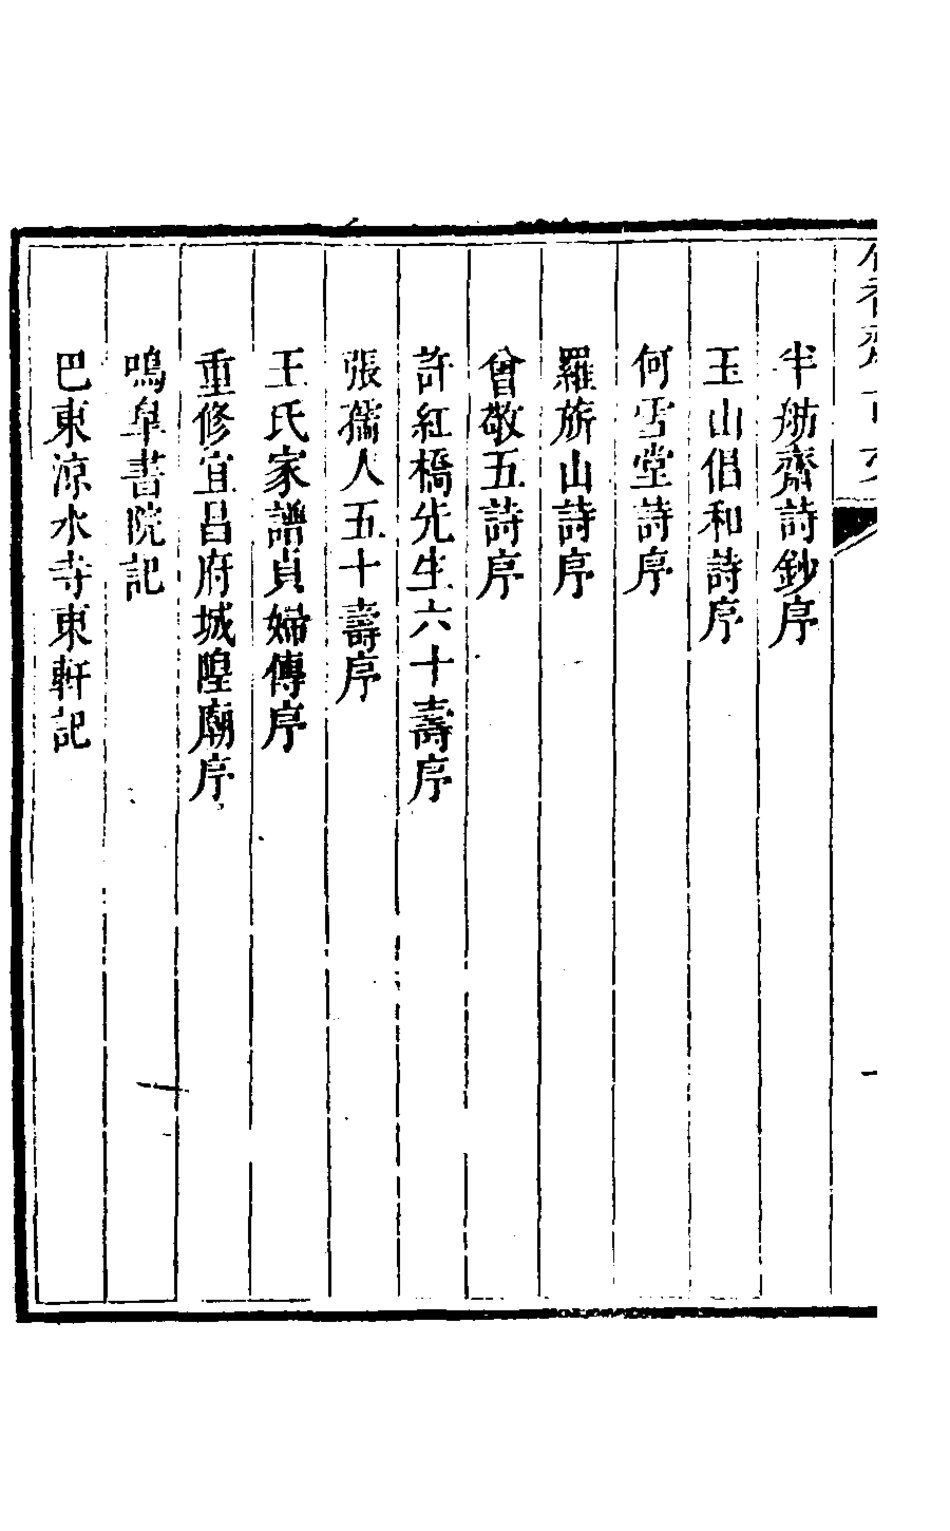 半舫齋詩鈔序
玉山倡和詩序
何雪堂詩序
羅旂山詩序
曾敬五詩序
許紅橋先生六十壽序
張孺人五十壽序
王氏家譜貞婦傳序
重修宜昌府城隍廟序
鳴皋書院記
巴東涼水寺東軒記